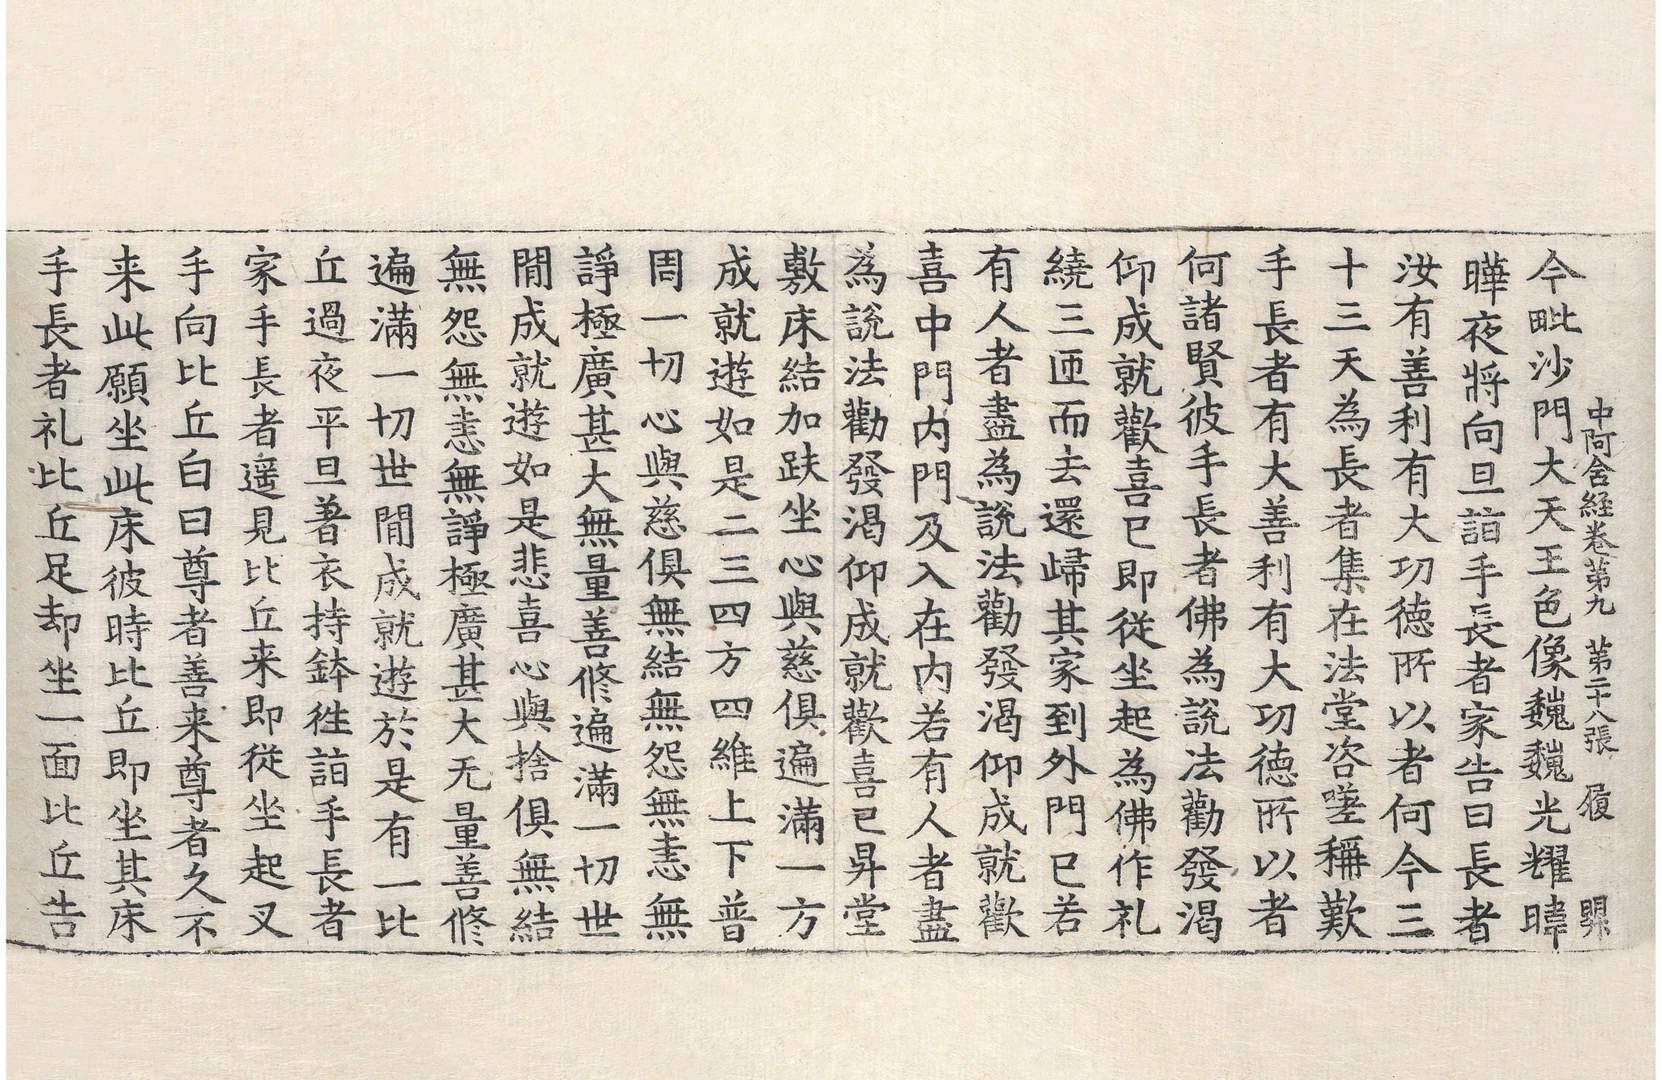 中阿含経卷第九 第二十八張 履
今毗沙門大天王色像巍巍光耀暐
曄夜將向旦詣手長者家告曰長者
汝有善利有大功德所以者何今三
十三天為長者集在法堂咨嗟稱歎
手長者有大善利有大功德所以者
何諸賢彼手長者佛為說法勸發渴
仰成就歡喜已即從坐起為佛作礼
繞三匝而去還歸其家到外門已若
有人者盡為說法勸發渴仰成就歡
喜中門內門及入在內若有人者盡
為說法勸發渴仰成就歡喜已昇堂
敷床結加趺坐心與慈俱遍滿一方
成就遊如是二三四方四維上下普
周一切心與慈俱無結無怨無恚無
諍極廣甚大無量善修遍滿一切世
閒成就遊如是悲喜心與捨俱無結
無怨無恚無諍極廣甚大无量善修
遍滿一切世閒成就遊於是有一比
丘過夜平旦著衣持鉢徃詣手長者
家手長者遥見比丘来即從坐起叉
手向比丘白曰尊者善来尊者久不
来此願坐此床彼時比丘即坐其床
手長者礼比丘足却坐一面比丘告